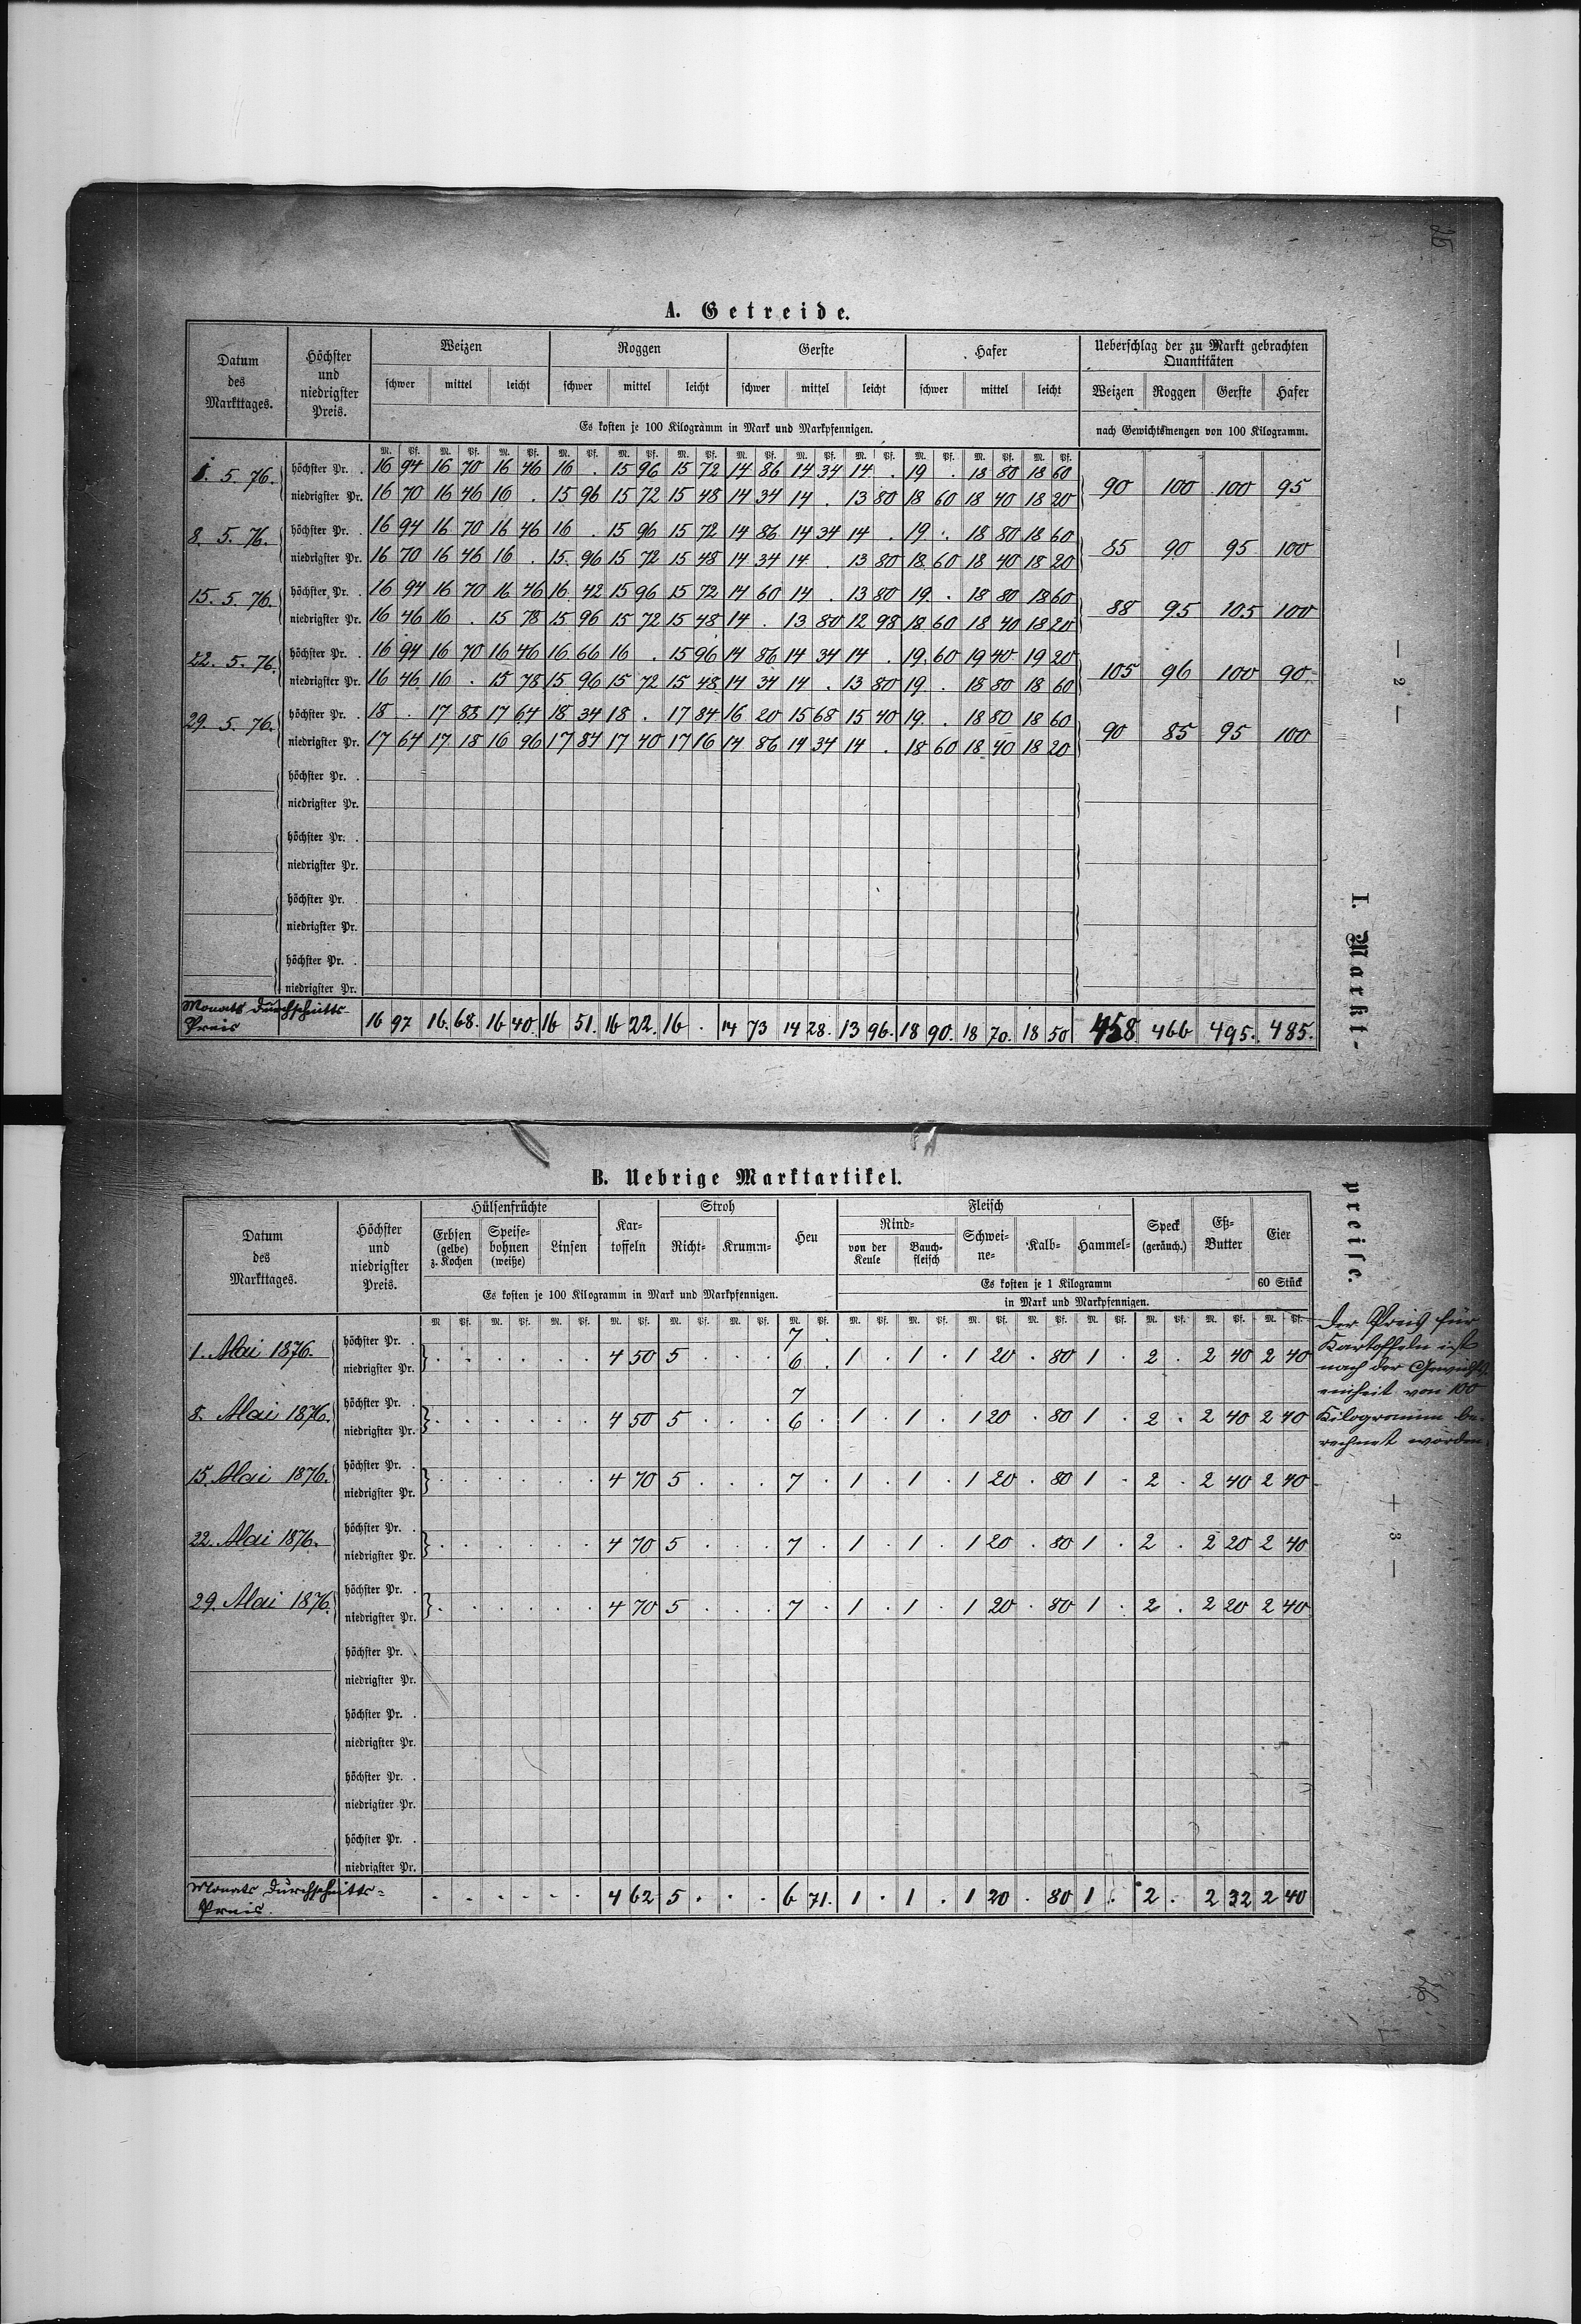 25
A. Getreide.
Datum des Markttages. | Höchster und niedrigster Preis. | Weizen | Roggen | Gerste | Hafer | Ueberschlag der zu Markt gebrachten Quantitäten
schwer | mittel | leicht | schwer | mittel | leicht | schwer | mittel | leicht | schwer | mittel | leicht | Weizen | Roggen | Gerste | Hafer
Es kosten je 100 Kilogramm in Mark und Markpfennigen. | nach Gewichtsmengen von 100 Kilogramm.
M. Pf. M. Pf. M. Pf. M. Pf. M. Pf. M. Pf. M. Pf. M. Pf. M. Pf. M. Pf. M. Pf. M. Pf.
1. 5. 76. höchster Pr. . 16 94 16 70 16 46 16 . 15 96 15 72 14 86 14 34 14 . 19 . 18 80 18 60
niedrigster Pr. 16 70 16 46 16 . 15 96 15 72 15 48 14 34 14 . 13 80 18 60 18 40 18 20 90 100 100 95
8. 5. 76. höchster Pr. . 16 94 16 70 16 46 16 . 15 96 15 72 14 86 14 34 14 . 19 . 18 80 18 60
niedrigster Pr. 16 70 16 46 16 . 15 96 15 72 15 48 14 34 14 . 13 80 18 60 18 40 18 20 85 90 95 100
15. 5. 76. höchster Pr. . 16 94 16 70 16 46 16 42 15 96 15 72 14 60 14 . 13 80 19 . 18 80 18 60
niedrigster Pr. 16 46 16 . 15 78 15 96 15 72 15 48 14 . 13 80 12 98 18 60 18 40 18 20 88 95 105 100
22. 5. 76. höchster Pr. . 16 94 16 70 16 46 16 66 16 . 15 96 14 86 14 34 14 . 19 60 19 40 19 20
niedrigster Pr. 16 46 16 . 15 78 15 96 15 72 15 48 14 34 14 . 13 80 19 . 18 80 18 60 105 96 100 90
29. 5. 76. höchster Pr. . 18 . 17 88 17 64 18 34 18 . 17 84 16 20 15 68 15 40 19 . 18 80 18 60
niedrigster Pr. 17 64 17 18 16 96 17 84 17 40 17 16 14 86 14 34 14 . 18 60 18 40 18 20 90 85 95 100
höchster Pr. .
niedrigster Pr.
höchster Pr. .
niedrigster Pr.
höchster Pr. .
niedrigster Pr.
höchster Pr. .
niedrigster Pr.
Monats Durchschnitts-
Preis 16 97 16. 68. 16 40. 16 51. 16 22. 16 . 14 73 14 28. 13 96. 18 90. 18 70. 18 50 458 466 495. 485.
— 2 —
I. Markt-
B. Uebrige Marktartikel.
Datum des Markttages. | Höchster und niedrigster Preis. | Hülsenfrüchte | Kar-toffeln | Stroh | Heu | Fleisch | Speck (geräuch.) | Eß-Butter | Eier
Erbsen (gelbe) z. Kochen | Speise-bohnen (weiße) | Linsen | Richt- | Krumm- | Rind- | von der Keule | Bauch-fleisch | Schwei-ne- | Kalb- | Hammel-
Es kosten je 100 Kilogramm in Mark und Markpfennigen. | Es kosten je 1 Kilogramm | 60 Stück
in Mark und Markpfennigen.
M. Pf. M. Pf. M. Pf. M. Pf. M. Pf. M. Pf. M. Pf. M. Pf. M. Pf. M. Pf. M. Pf. M. Pf. M. Pf. M. Pf. M. Pf.
1. Mai 1876. höchster Pr. . 7 .
niedrigster Pr. . . . . . . 4 50 5 . . . 6 . 1 . 1 . 1 20 . 80 1 . 2 . 2 40 2 40
8. Mai 1876. höchster Pr. . 7
niedrigster Pr. . . . . . . 4 50 5 . . . 6 . 1 . 1 . 1 20 . 80 1 . 2 . 2 40 2 40
15. Mai 1876. höchster Pr. .
niedrigster Pr. . . . . . . 4 70 5 . . . 7 . 1 . 1 . 1 20 . 80 1 . 2 . 2 40 2 40
22. Mai 1876. höchster Pr. .
niedrigster Pr. . . . . . . 4 70 5 . . . 7 . 1 . 1 . 1 20 . 80 1 . 2 . 2 20 2 40
29. Mai 1876 höchster Pr. .
niedrigster Pr. . . . . . . 4 70 5 . . . 7 . 1 . 1 . 1 20 . 80 1 . 2 . 2 20 2 40
höchster Pr. .
niedrigster Pr.
höchster Pr. .
niedrigster Pr.
höchster Pr. .
niedrigster Pr.
höchster Pr. .
niedrigster Pr.
Monats Durchschnitts=
Preis. . . . . . . 4 62 5 . . . 6 71. 1 . 1 . 1 20 . 80 1 . 2 . 2 32 2 40
preise.
Der Preis für
Kartoffeln ist
nach der Gewichts-
einheit von 100
Kilogramm be-
rechnet worden.
— 3 —